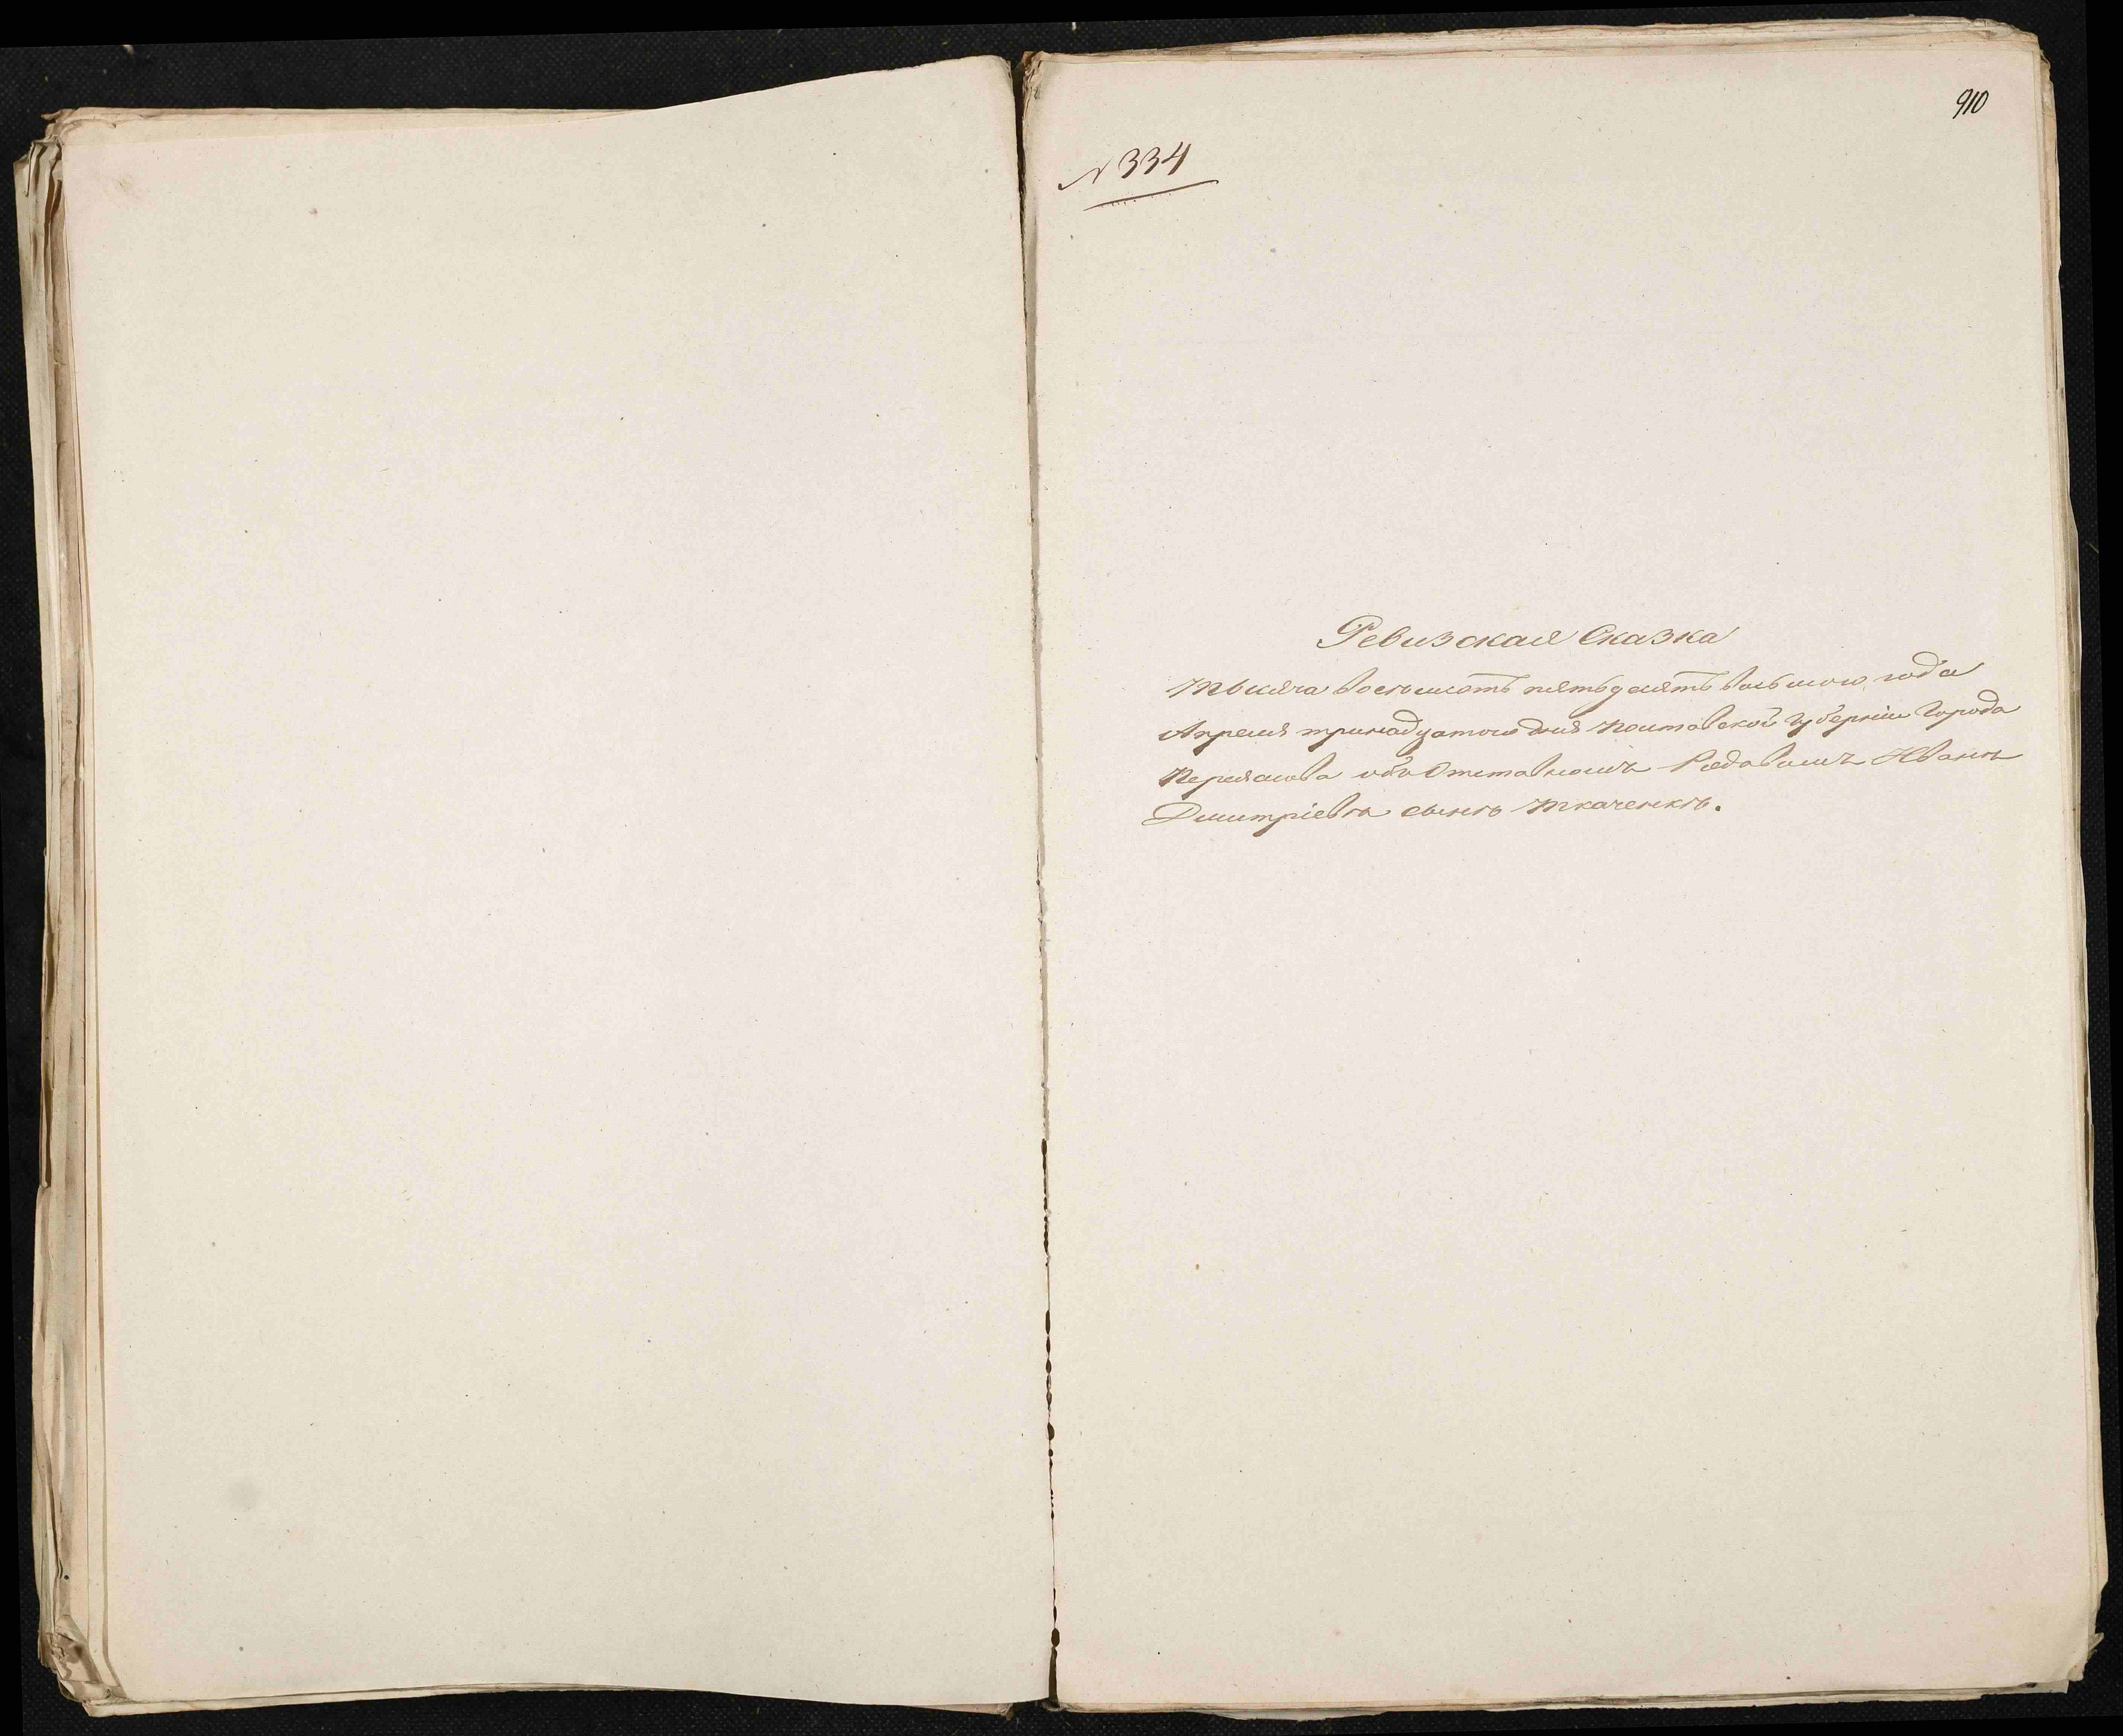 910
№ 334
Ревизская Сказка
Тысяча восемьсотъ пятьдесятъ восьмого года
Апреля тринадцатого дня Полтавской Губерніи Города
Переяслова объ Отставномъ Рядовомъ Иванъ
Дмитріевъ сынъ Ткаченкъ.